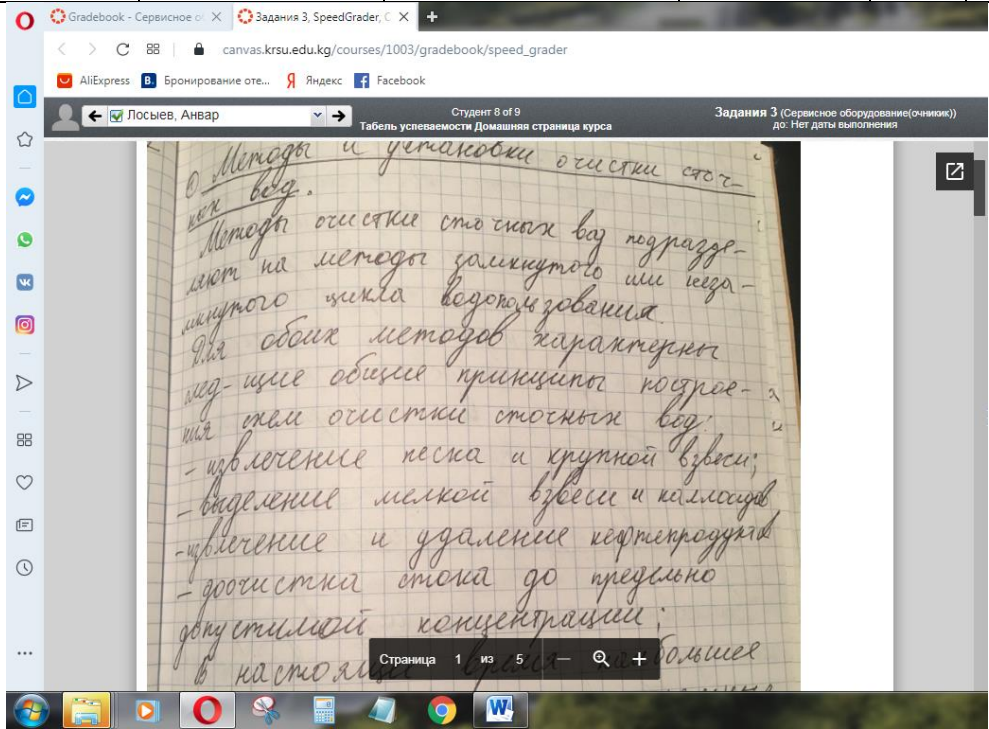 Gradebook - Сервисное о
Задания 3, SpeedGrader, С
canvas.krsu.edu.kg/courses/1003/gradebook/speed_grader
AliExpress
B. Бронирование оте...
Я Яндекс
Facebook
Лосыев, Анвар
Студент 8 of 9
Табель успеваемости Домашняя страница курса
Задания 3 (Сервисное оборудование(очникик))
до: Нет даты выполнения
Методы и установки очистки сточ-
ных вод.
Методы очистки сточных вод подразде-
ляют на методы замкнутого или неза-
мкнутого цикла водопользования.
Для обоих методов характерны
след-щие общие принципы построе-
ния схем очистки сточных вод:
- извлечение песка и крупной взвеси;
- выделение мелкой взвеси и каллоидов
- извлечение и удаление нефтепродуктов
- доочистка стока до предельно
допустимой концентрации;
В настоящие время наибольшее
Страница 1 из 5